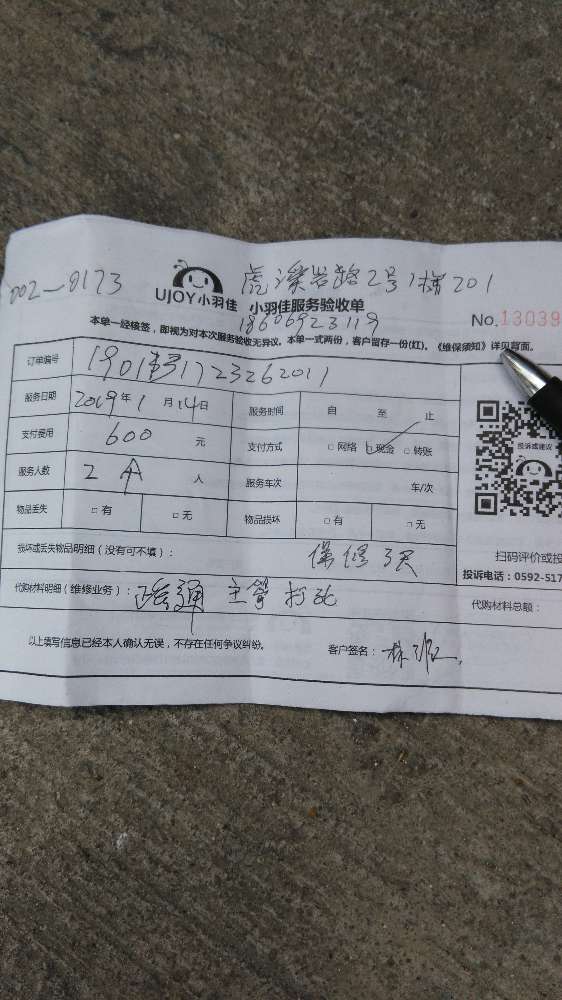 002-0173 虎溪岩路2号1栋201
UJOY小羽佳 小羽佳服务验收单
18606923119 No.13039
本单一经核签，即视为对本次服务验收无异议。本单一式两份，客户留存一份(红)。《维保须知》详见背面。
订单编号 1723262011
服务日期 2019年1月14日 服务时间 自 至 止
支付费用 600 元 支付方式 □网络 □现金 □转账
服务人数 2个 人 服务车次 车/次
投诉或建议
物品丢失 □有 □无 物品损坏 □有 □无
损坏或丢失物品明细（没有可不填）： 保修3天
扫码评价或投
投诉电话：0592-517
代购材料明细（维修业务）： 疏通主管
代购材料总额：
以上填写信息已经本人确认无误，不存在任何争议纠纷。 客户签名：